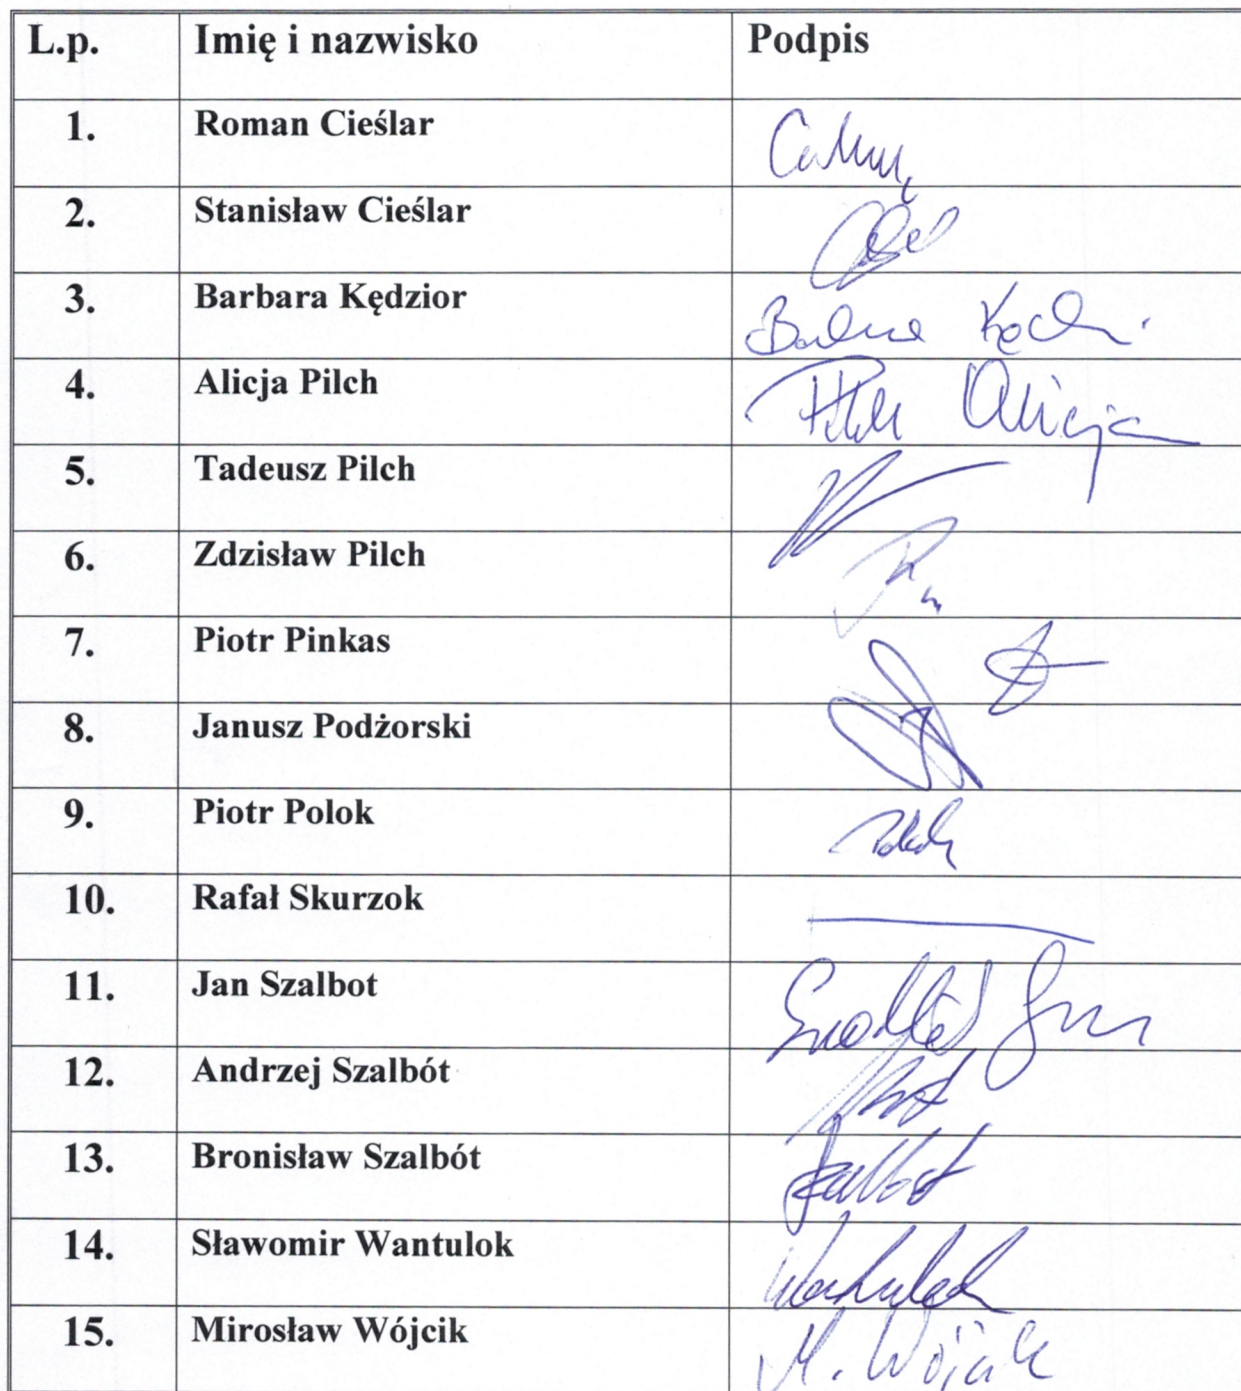 L.p. Imię i nazwisko Podpis
1. Roman Cieślar
2. Stanisław Cieślar
3. Barbara Kędzior
4. Alicja Pilch Pilch Alicja
5. Tadeusz Pilch
6. Zdzisław Pilch
7. Piotr Pinkas
8. Janusz Podżorski
9. Piotr Polok
10. Rafał Skurzok
11. Jan Szalbot
12. Andrzej Szalbót
13. Bronisław Szalbót Szalbót
14. Sławomir Wantulok Wantulok
15. Mirosław Wójcik M. Wójcik